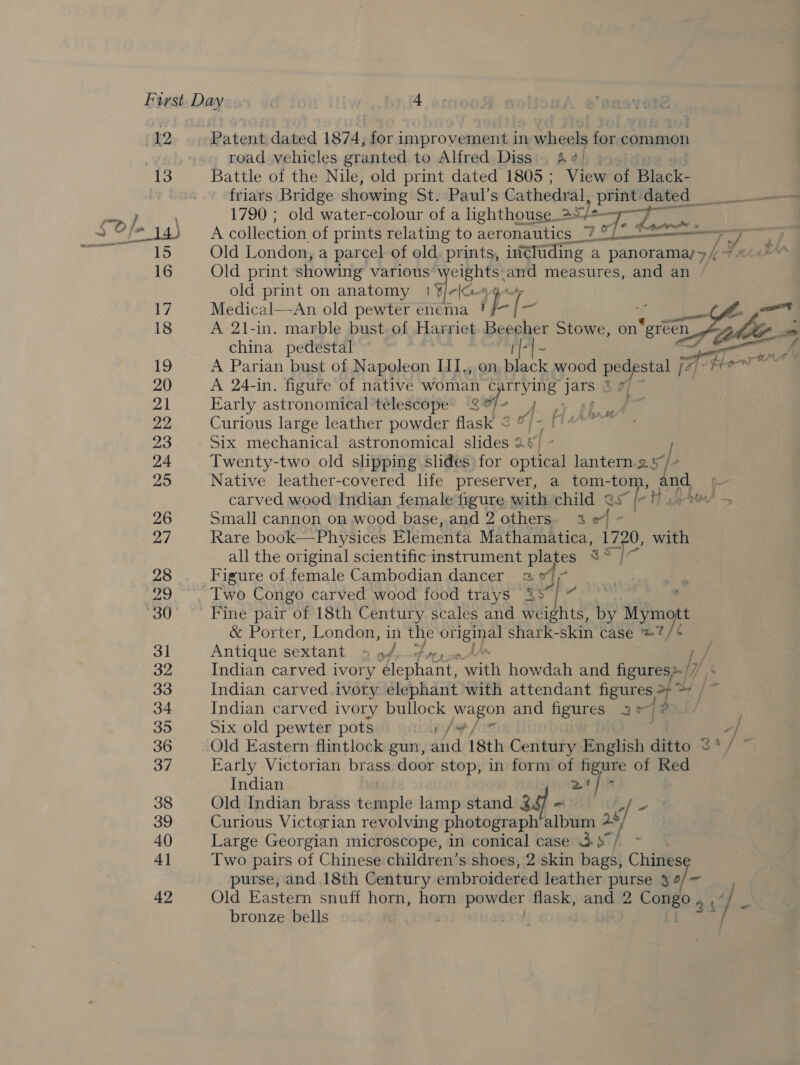 First Day 4
12 Patent dated 1874, for improvement in wheels for common
road vehicles granted to Alfred Diss
13 Battle of the Nile, old print dated 1805 ; View of Black-
friars Bridge showing St. Paul's Cathedral, print dated
1790 ; old water-colour of a lighthouse 25/-
50/- 14) A collection of prints relating to aeronautics
15 Old London, a parcel of old prints, including a panorama
16 Old print showing various weights and measures, and an
old print on anatomy
17 Medical—An old pewter enema
18 A 21-in. marble bust of Harriet Beecher Stowe, on green
china pedestal
19 A Parian bust of Napoleon III., on black wood pedestal
20 A 24-in. figure of native woman carrying jars
21 Early astronomical telescope
22 Curious large leather powder flask
23 Six mechanical astronomical slides
24 Twenty-two old slipping slides for optical lantern 25/-
25 Native leather-covered life preserver, a tom-tom, and
carved wood Indian female figure with child
26 Small cannon on wood base, and 2 others 30/-
27 Rare book—Physices Elementa Mathamatica, 1720, with
all the original scientific instrument plates
28 Figure of female Cambodian dancer
29 Two Congo carved wood food trays
30 Fine pair of 18th Century scales and weights, by Mymott
& Porter, London, in the original shark-skin case
31 Antique sextant
32 Indian carved ivory elephant, with howdah and figures
33 Indian carved ivory elephant with attendant figures
34 Indian carved ivory bullock wagon and figures
35 Six old pewter pots
36 Old Eastern flintlock gun, and 18th Century English ditto
37 Early Victorian brass door stop, in form of figure of Red
Indian
38 Old Indian brass temple lamp stand
39 Curious Victorian revolving photograph album
40 Large Georgian microscope, in conical case
41 Two pairs of Chinese children's shoes, 2 skin bags, Chinese
purse, and 18th Century embroidered leather purse 30/-
42 Old Eastern snuff horn, horn powder flask, and 2 Congo
bronze bells